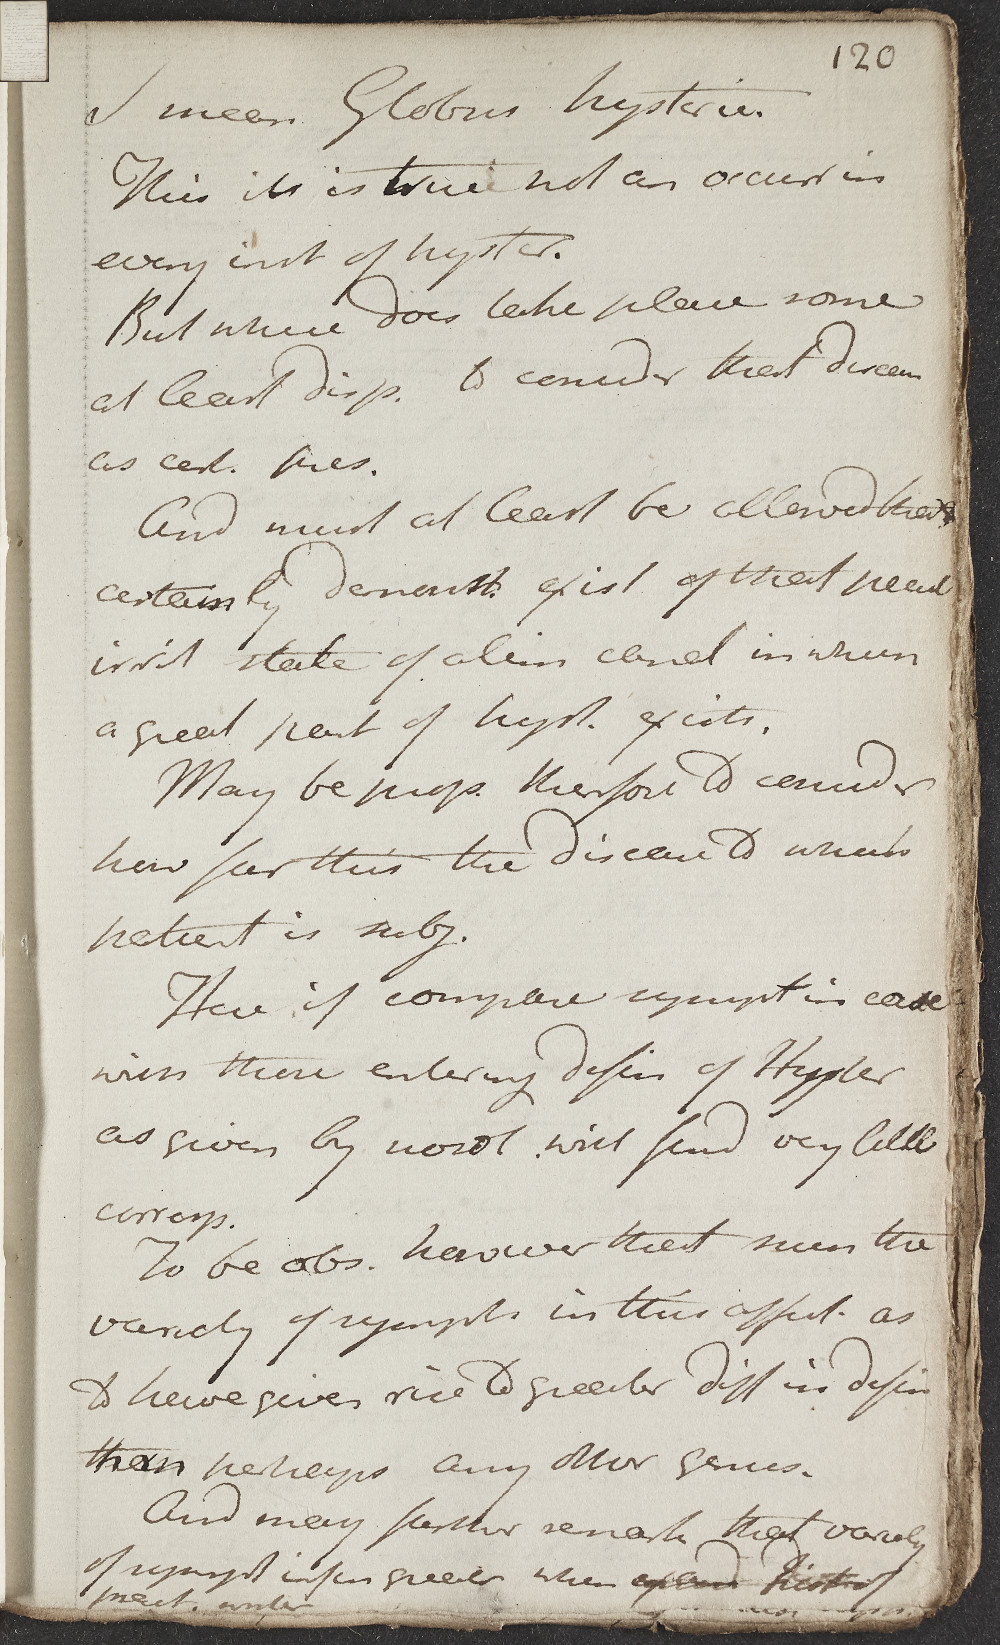 120
I mean Globus hysteric.
This it is true not an occurr in
every inst of hyster.
But where does take place some
at least disp. to consider that disease
as cert. pres.
And must at least be allowed that
certainly demonst. exist of that pecul
irrit state of alim canal in whom
a great part of hyst. exists.
May be prop. therefore to consider
how far this the disease to which
patient is subj.
Here if compare sympt in case
with those entering defin of Hyster
as given by nosol will find very little
corresp.
To be obs. however that such the
variety of sympts in this affect. as
to have given rise to greater diff in defin
than perhaps any other genus.
And may further remark that variety
of sympt infin greater when
pract. writer